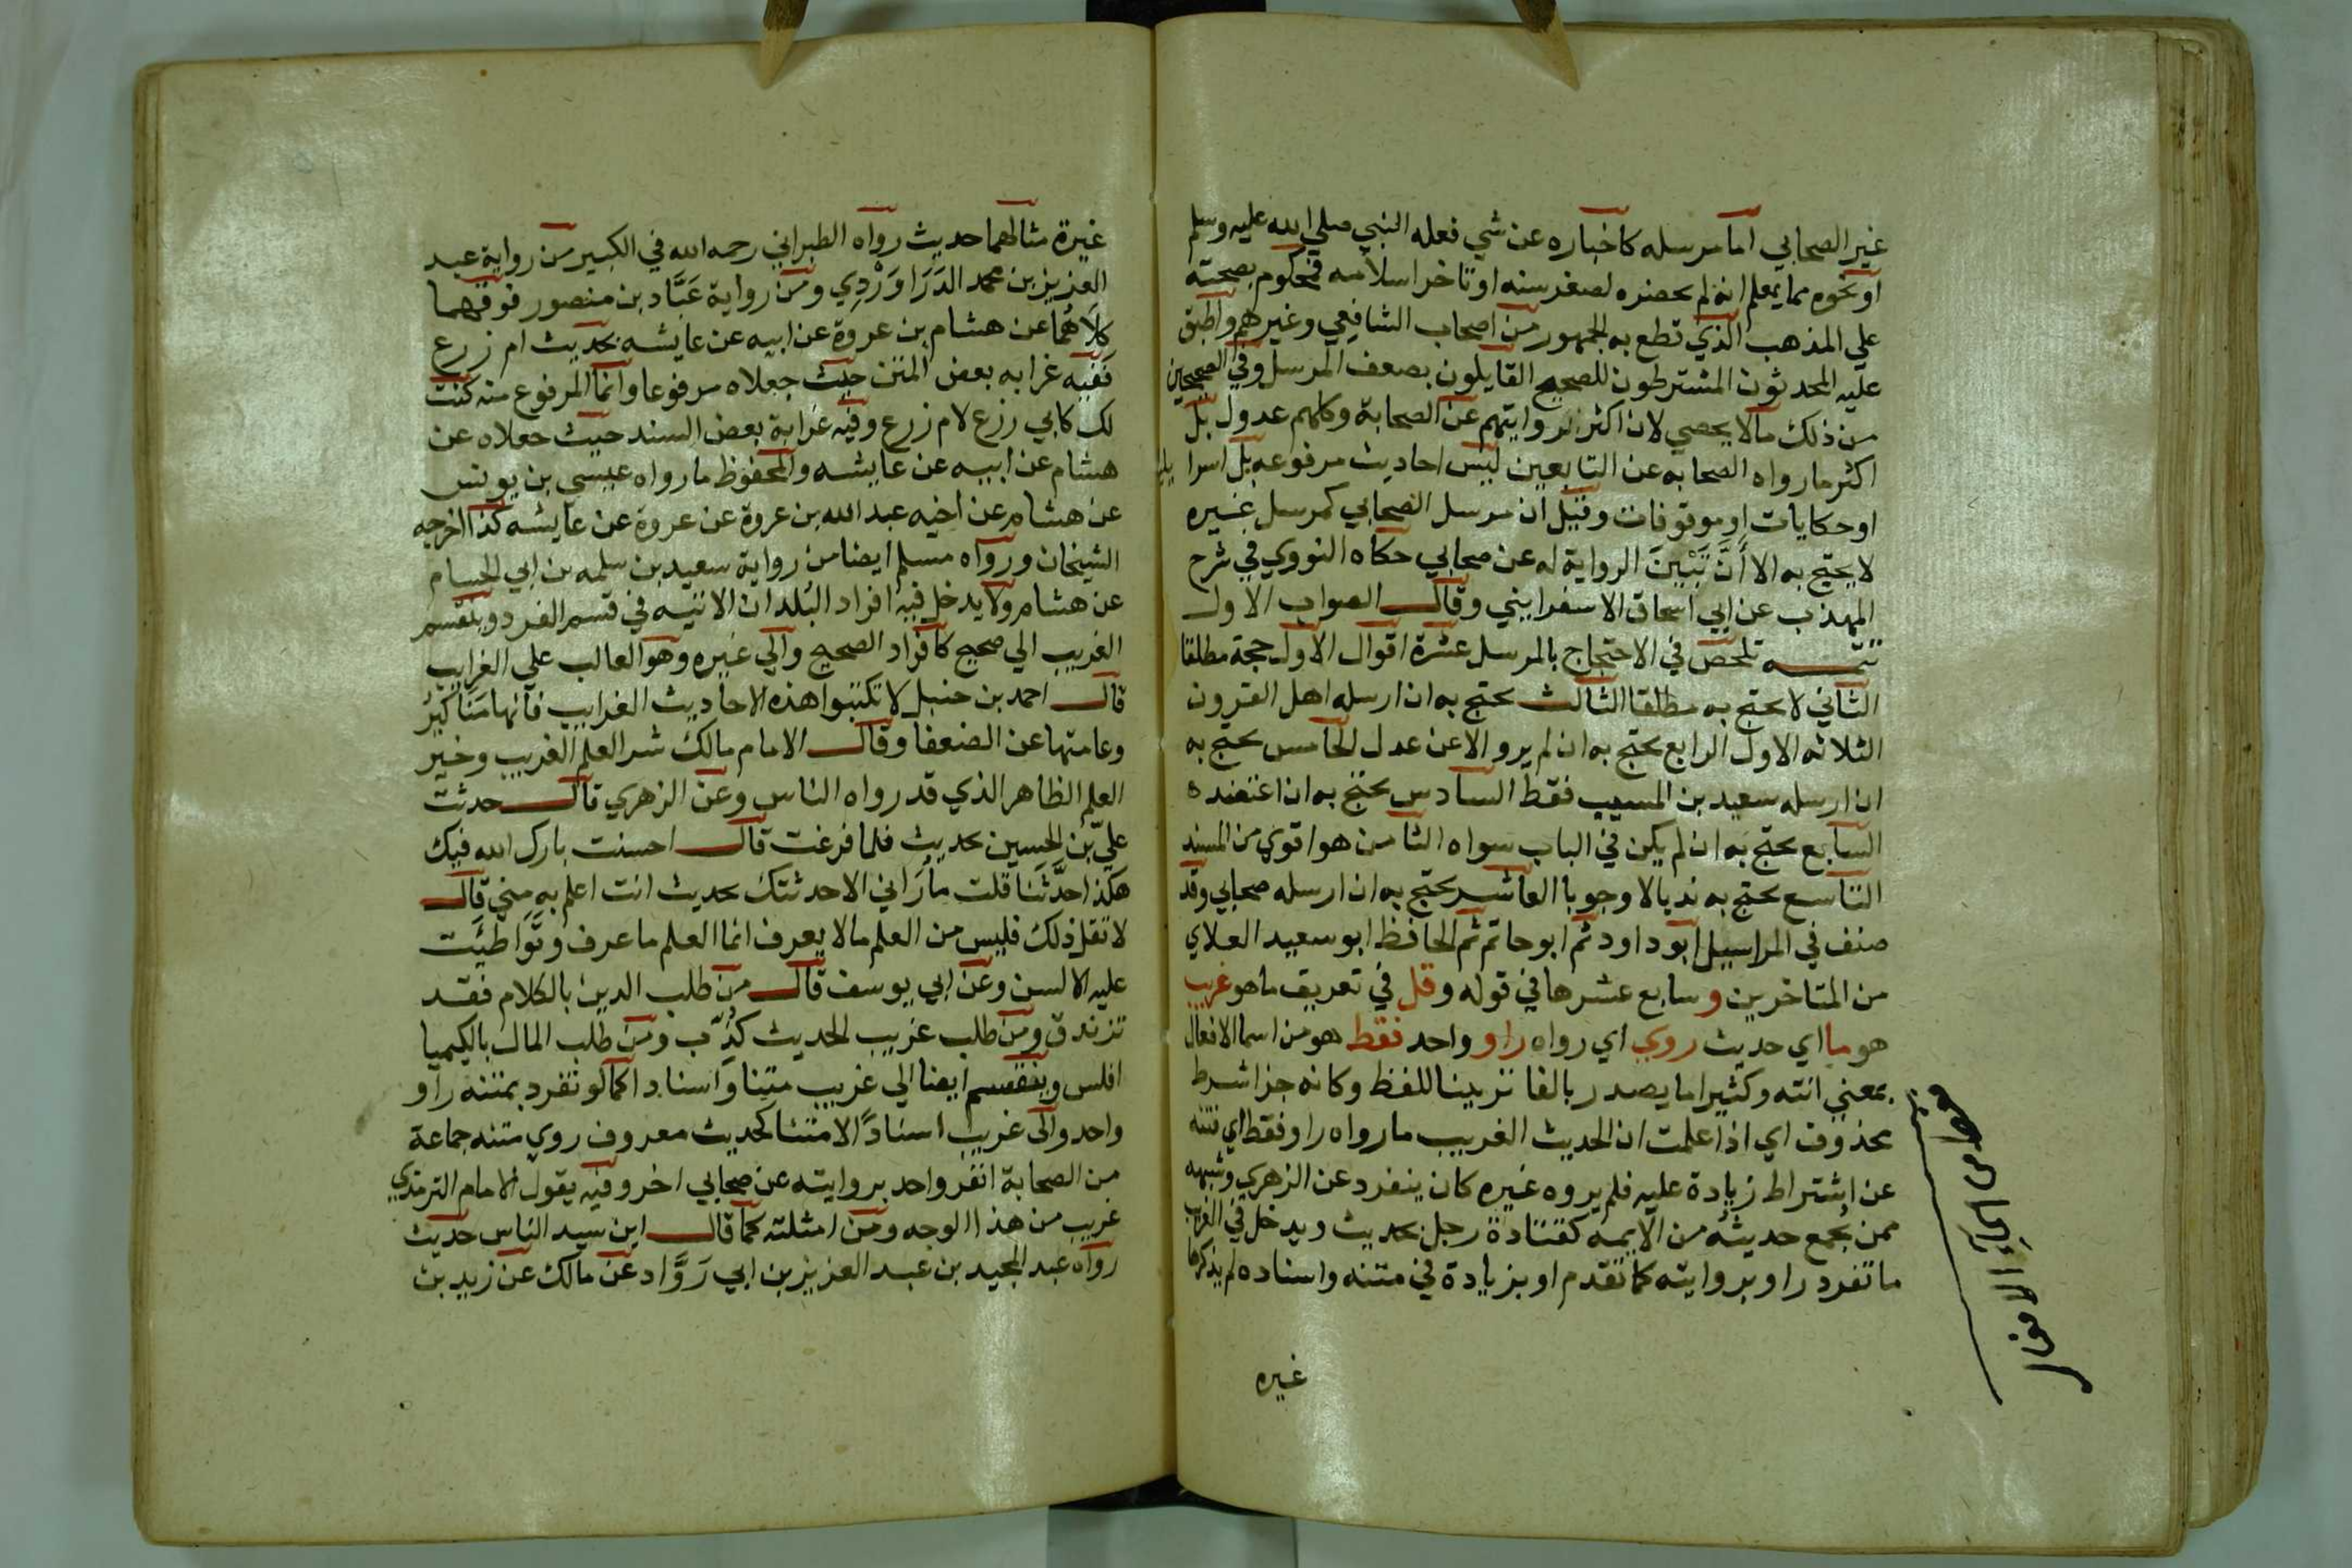 غير الصحابي اما مرسله كاخباره عن شي فعله النبي صلي الله عليه وسلم
او نحوه مما يعلم انه لم يحضره لصغر سنه او تاخر اسلامه فمحكوم بصحته
علي المذهب الذي قطع به الجمهور من اصحاب الشافعي وغيرهم واطبق
عليه المحدثون المشترطون للصحيح القايلون بضعف المرسل وفي الصحيحين
من ذلك مالا يحصي لان اكثر روايتهم عن الصحابة وكلهم عدول بل
اكثر ما رواه الصحابه عن التابعين ليس احاديث مرفوعه بل اسراييليات
او حكايات او موقوفات وقيل ان مرسل الصحابي كمرسل غيره
لا يحتج به الا أن تَبْيِنَ الرواية له عن صحابي حكاه النووي في شرح
المهذب عن ابي اسحاق الاسفرايني وقال الصواب الاول
تتمه تلخص في الاحتجاج بالمرسل عشرة اقوال الاول حجة مطلقا
الثاني لا يحتج به مطلقا الثالث يحتج به ان ارسله اهل القرون
الثلاثه الاول الرابع يحتج به ان لم يرو الا عن عدل الخامس يحتج به
ان ارسله سعيد بن المسيب فقط السادس يحتج به ان اعتضده
السابع يحتج به ان لم يكن في الباب سواه الثامن هو اقوي من المسند
التاسع يحتج به ندبا لا وجوبا العاشر يحتج به ان ارسله صحابي وقد
صنف في المراسيل ابو داود ثم ابو حاتم ثم الحافظ ابو سعيد العلاي
من المتاخرين وسابع عشرها في قوله وقل في تعريف ما هو غريب
هو ما اي حديث روي اي رواه راو واحد فقط هو من اسما الافعال
بمعني انته وكثيرا ما يصدر بالفا تزيينا للفظ وكانه جزا شرط
محذوف اي اذا علمت ان الحديث الغريب ما رواه راو فقط اي فته
عن اشتراط زيادة عليه فلم يروه غيره كان ينفرد عن الزهري وشبهه
ممن يُجمع حديثُه من الايمه كقتادة رجل بحديث ويدخل في الغريب
ما تفرد راو بروايته كما تقدم او بزيادة في متنه واسناده لم يذكرها
غيره
غيرة مثالهما حديث رواه الطبراني رحمه الله في الكبير من رواية عبد
العزيز بن محمد الدَرَاوَرْدِي ومن رواية عَبَّاد بن منصور فوقهما
كلاهُما عن هشام بن عروة عن ابيه عن عايشه بحديث ام زرع
فَفيه غرابه بعض المتن حيث جعلاه مرفوعا وانما المرفوع منه كنت
لك كابي زرع لام زرع وفيه غرابة بعض السند حيث جعلاه عن
هشام عن ابيه عن عايشه والمحفوظ ما رواه عيسي بن يونس
عن هشام عن اخيه عبد الله بن عروة عن عروة عن عايشه كذا اخرجه
الشيخان ورواه مسلم ايضا من رواية سعيد بن سلمه بن ابي الحسام
عن هشام ولا يدخل فيه افراد البُلدان الاتيه في قسم الفرد وينقسم
الغريب الي صحيح كافراد الصحيح والي غيره وهو الغالب علي الغرايب
قال احمد بن حنبل لا تكتبوا هذه الاحاديث الغرايب فانها مَنَاكيرُ
وعامتها عن الضعفا وقال الامام مالك شر العلم الغريب وخير
العلم الظاهر الذي قد رواه الناس وعن الزهري قال حدثت
عليّ بن الحسين بحديث فلما فرغت قال احسنت بارك الله فيك
هكذا حدَّثَنا قلت ما رَاني الا حدثتك بحديث انت اعلم به مني قال
لا تقل ذلك فليس من العلم مالا يعرف انما العلم ما عرف وتَوَاطئَت
عليه الالسن وعن ابي يوسف قال من طلب الدين بالكلام فقد
تزندق ومن طلب غريب الحديث كُذِّب ومن طلب المال بالكيميا
افلس وينقسم ايضا الي غريب متنا واسنادا كما لو تفرد بمتنه راو
واحد والي غريب اسناداً لا متنا كحديث معروف روي متنه جماعة
من الصحابة انفر واحد بروايته عن صحابي اخر وفيه يقول الامام الترمذي
غريب من هذا الوجه ومن امثلته كما قال ابن سيد الناس حديث
رواه عبد المجيد بن عبد العزيز بن ابي رَوَّاد عن مالك عن زيد بن